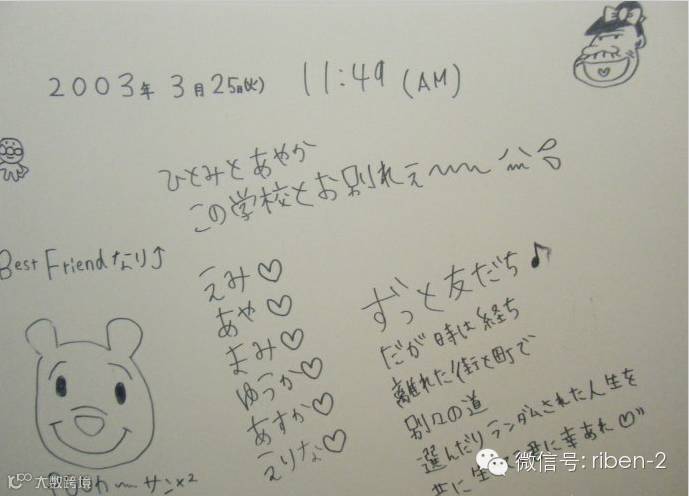 2003年 3月25日(火) 11:49 (AM)
ひとみとあやか
この学校とお別れぇ〜
Best Friendなり↑
えみ♡
あや♡
まみ♡
ゆうか♡
あすか♡
えりな♡
ずっと友だち♪
だが時は経ち
離れた街と町で
別々の道
選んだりランダムされた人生を
共に生 に幸あれ♡
サン×2
大数跨境
微信号: riben-2